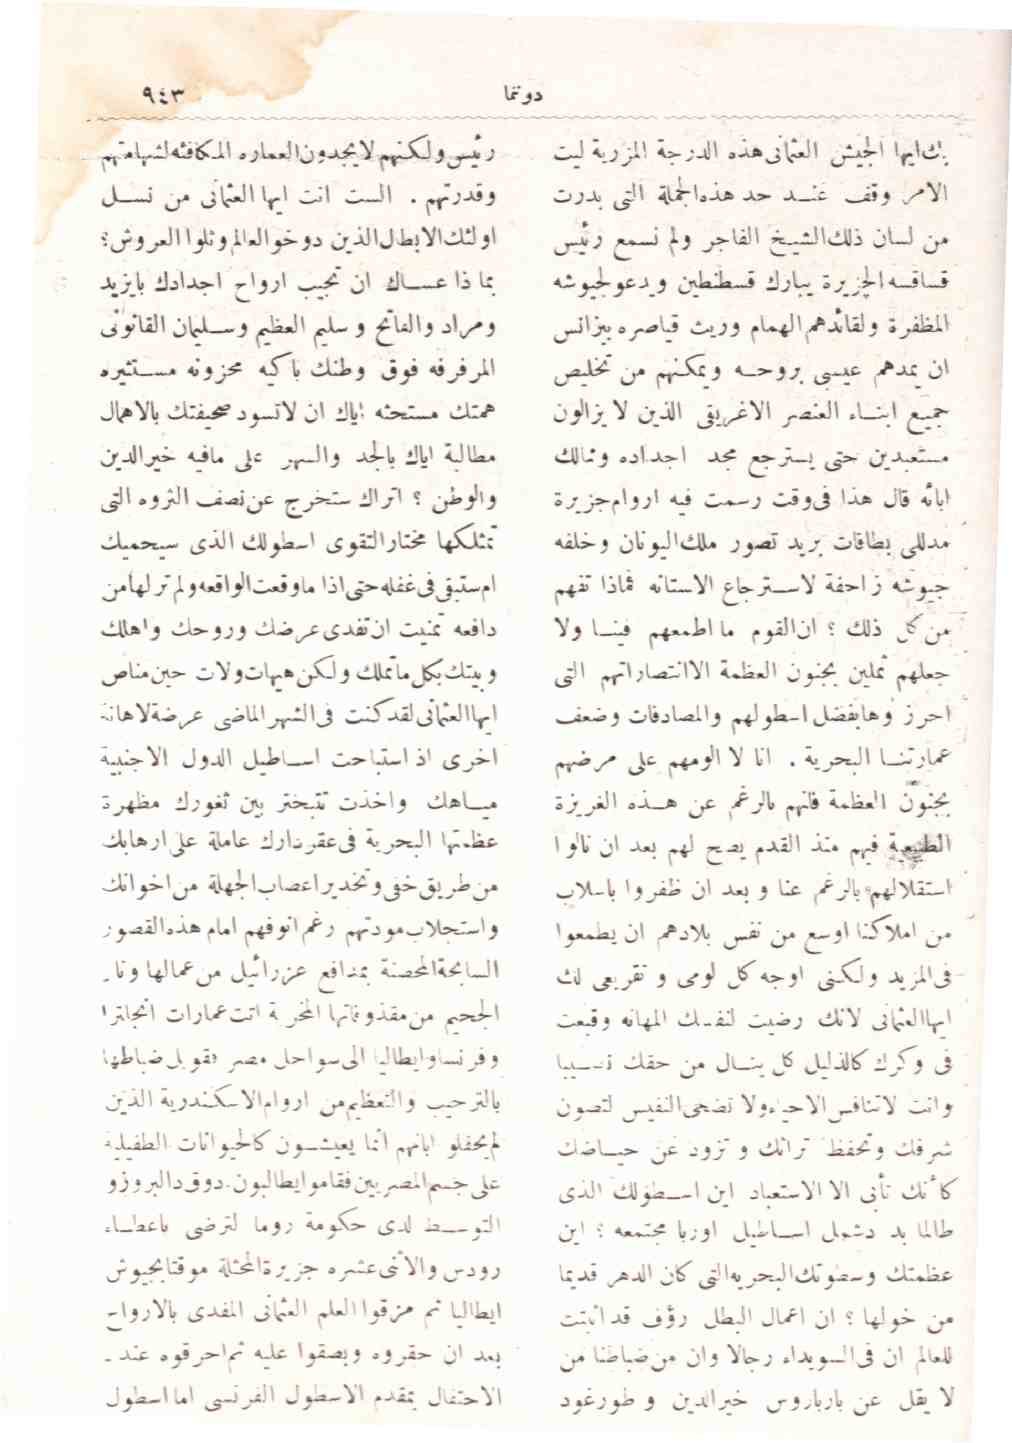 ٩٤٣
دوننما
بك ايها الجيش العثمانى هذه الدرجة المزرية ليت
الامر وقف عند حد هذه الجملة التى بدرت
من لسان ذلك الشيخ الفاجر ولم نسمع رئيس
قساقسه الجزيرة يبارك قسطنطين ويدعو لجيوشه
المظفرة ولقائدهم الهمام وريث قياصره بيزانس
ان يمدهم عيسى بروحه ويمكنهم من تخليص
جميع ابناء العنصر الاغريقى الذين لا يزالون
مستعبدين حتى يسترجع مجد اجداده وممالك
ابائه قال هذا فى وقت رسمت فيه اروام جزيرة
مدللى بطاقات بريد تصور ملك اليونان وخلفه
جيوشه زاحفة لاسترجاع الاستانه فماذا تفهم
من كل ذلك ؟ ان القوم ما اطمعهم فينا ولا
جعلهم ثملين بجنون العظمة الا انتصاراتهم التى
احرزوها بفضل اسطولهم والمصادفات وضعف
عمارتنا البحرية . انا لا الومهم على مرضهم
بجنون العظمة فانهم بالرغم عن هذه الغريزة
الطبيعية فيهم منذ القدم يصح لهم بعد ان نالوا
استقلالهم بالرغم عنا و بعد ان ظفروا باسلاب
من املاكنا اوسع من نفس بلادهم ان يطمعوا
فى المزيد ولكنى اوجه كل لومى و تقريعى لك
ايها العثمانى لانك رضيت لنفسك المهانه وقبعت
فى وكرك كالذليل كل ينال من حقك نصيبا
وانت لا تنافس الاحياء ولا تضحى النفيس لتصون
شرفك وتحفظ تراثك و تزود عن حياضك
كأنك تأبى الا الاستعباد اين اسطولك الذى
طالما بدد شمل اساطيل اوربا مجتمعه ؟ اين
عظمتك وسطوتك البحريه التى كان الدهر قديما
من خولها ؟ ان اعمال البطل رؤف قد اثبتت
للعالم ان فى السويداء رجالا وان من ضباطنا من
لا يقل عن بارباروس خيرالدين و طورغود
رئيس ولكنهم لا يجدون العماره المكافئه لشهامتهم
وقدرتهم . الست انت ايها العثمانى من نسل
اولئك الابطال الذين دوخوا العالم وثلوا العروش؟
بما ذا عساك ان تجيب ارواح اجدادك بايزيد
ومراد والفاتح و سليم العظيم وسليمان القانونى
المرفرفه فوق وطنك باكيه محزونه مستثيره
همتك مستحثه اياك ان لا تسود صحيفتك بالاهمال
مطالبة اياك بالجد والسهر على مافيه خير الدين
والوطن ؟ اتراك ستخرج عن نصف الثروه التى
تمتلكها مختارا لتقوى اسطولك الذى سيحميك
ام ستبقى فى غفله حتى اذا ما وقعت الواقعه ولم تر لها من
دافعه تمنيت ان تفدى عرضك وروحك واهلك
وبيتك بكل ماتملك ولكن هيهات ولات حين مناص
ايها العثمانى لقد كنت فى الشهر الماضى عرضة لاهانة
اخرى اذ استباحت اساطيل الدول الاجنبية
مياهك واخذت تتبختر بين ثغورك مظهرة
عظمتها البحرية فى عقر دارك عاملة على ارهابك
من طريق خفى وتخدير اعصاب الجهلة من اخوانك
واستجلاب مودتهم رغم انوفهم امام هذه القصور
السابحة المحصنة بمدافع عزرائيل من عمالها ونار
الجحيم من مقذوفاتها المخربة اتت عمارات انجلترا
وفرنسا وايطاليا الى سواحل مصر فقوبل ضباطها
بالترحيب والتعظيم من اروام الاسكندرية الذين
لم يحفلوا بانهم انما يعيشون كالحيوانات الطفيلية
على جسم المصريين فقاموا يطالبون دوق دالبروزو
التوسط لدى حكومة روما لترضى باعطاء
رودس والاثنى عشره جزيرة المحتلة موقتا بجيوش
ايطاليا ثم مزقوا العلم العثمانى المفدى بالارواح
بعد ان حقروه وبصقوا عليه ثم احرقوه عند
الاحتفال بمقدم الاسطول الفرنسى اما اسطول